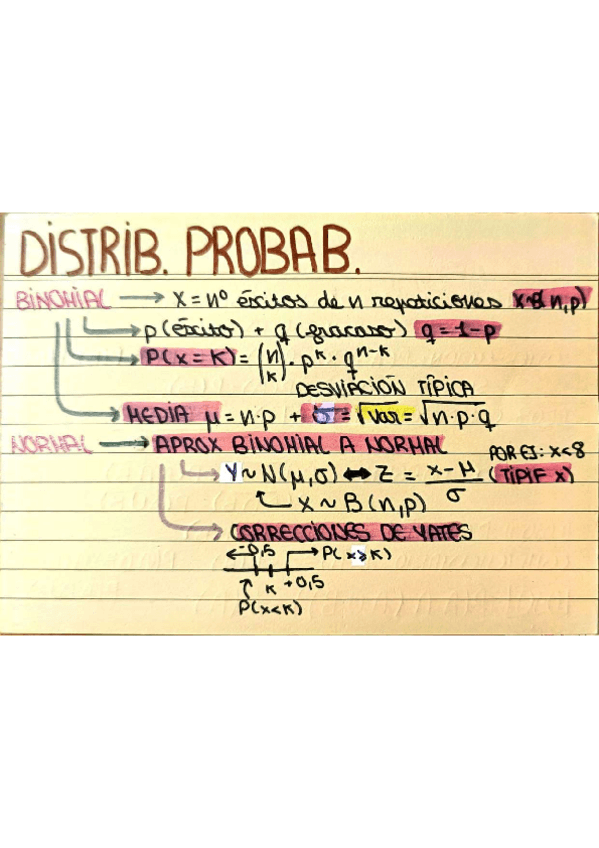 DISTRIB. PROBAB.
BINOMIAL → X = nº éxitos de n repeticiones X~B(n,p)
p (éxito) + q (fracaso) q = 1-p
P(x = K) = (n K) · p^K · q^n-K
DESVIACIÓN TÍPICA
MEDIA μ = n·p + σ = √Var = √n·p·q
NORMAL → APROX BINOMIAL A NORMAL POR EJ: x<8
Y ~ N(μ,σ) ↔ Z = x-μ/σ (TIPIF x)
X ~ B(n,p)
CORRECCIONES DE YATES
-0,5 P(x>K)
K +0,5
P(x<K)